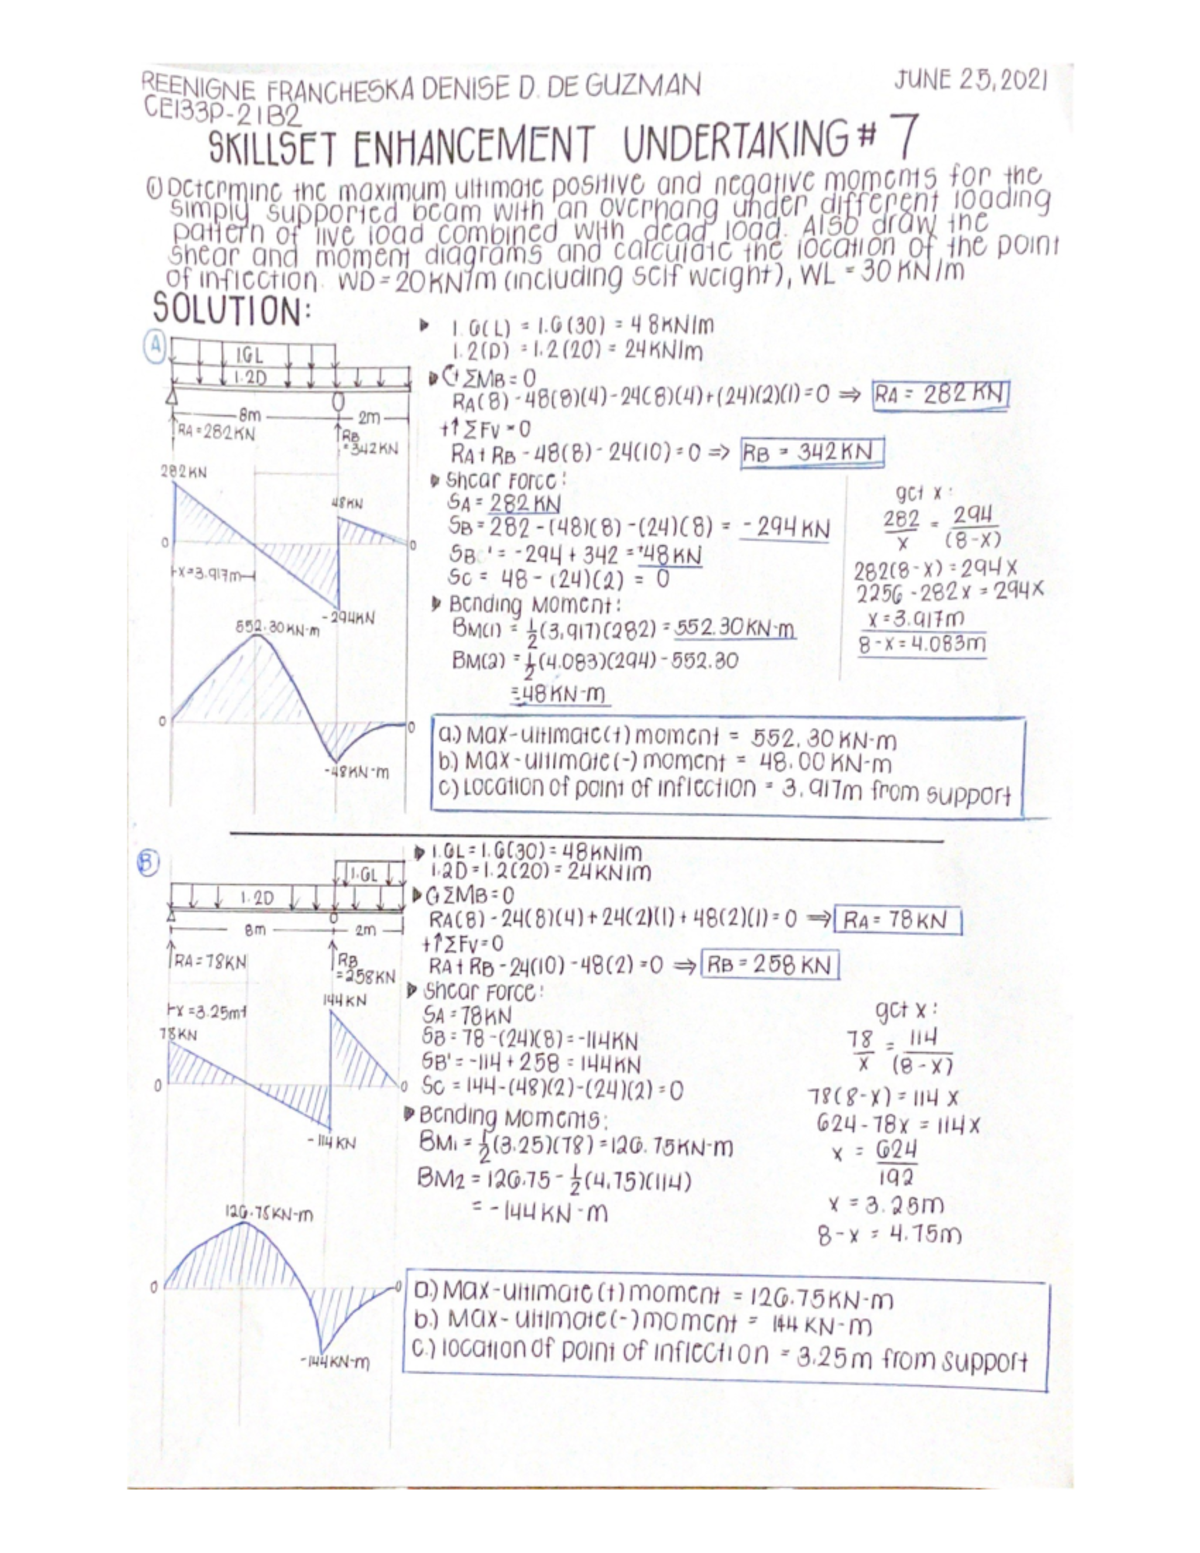 REENIGNE FRANCHESKA DENISE D. DE GUZMAN
JUNE 25, 2021
CE133P-2 | B2
SKILLSET ENHANCEMENT UNDERTAKING # 7
① Determine the maximum ultimate positive and negative moments for the
simply supported beam with an overhang under different loading
pattern of live load combined with dead load. Also draw the
shear and moment diagrams and calculate the location of the point
of inflection. WD = 20 KN/m (including self weight), WL = 30 KN/m
SOLUTION:
A
1.6L
1.2D
8m
2m
RA = 282 KN
RB = 342 KN
282 KN
48 KN
0
0
x = 3.917m
-294KN
552.30 KN-m
0
0
-48KN-m
▶ 1.6(L) = 1.6(30) = 48KN/m
1.2(D) = 1.2(20) = 24KN/m
▶ ΣMB = 0
RA(8) - 48(8)(4) - 24(8)(4) + (24)(2)(1) = 0 ⇒ RA = 282 KN
+↑ΣFv = 0
RA + RB - 48(8) - 24(10) = 0 => RB = 342 KN
▶ Shear Force:
SA = 282 KN
SB = 282 - (48)(8) - (24)(8) = -294 KN
SB' = -294 + 342 = 48 KN
SC = 48 - (24)(2) = 0
▶ Bending Moment:
BM(1) = 1/2(3.917)(282) = 552.30 KN-m
BM(2) = 1/2(4.083)(294) - 552.30
= 48 KN-m
get x:
282/x = 294/(8-x)
282(8-x) = 294x
2256 - 282x = 294x
x = 3.917m
8-x = 4.083m
a.) Max-ultimate(+) moment = 552.30 KN-m
b.) Max-ultimate(-) moment = 48.00 KN-m
c.) Location of point of inflection = 3.917m from support
B
1.6L
1.2D
8m
2m
RA = 78KN
RB = 258KN
x = 3.25m
78KN
144 KN
0
0
-114 KN
126.75KN-m
0
0
-144KN-m
▶ 1.6L = 1.6(30) = 48KN/m
1.2D = 1.2(20) = 24KN/m
▶ ΣMB = 0
RA(8) - 24(8)(4) + 24(2)(1) + 48(2)(1) = 0 ⇒ RA = 78 KN
+↑ΣFv = 0
RA + RB - 24(10) - 48(2) = 0 ⇒ RB = 258 KN
▶ Shear Force:
SA = 78KN
SB = 78 - (24)(8) = -114KN
SB' = -114 + 258 = 144KN
SC = 144 - (48)(2) - (24)(2) = 0
▶ Bending Moments:
BM1 = 1/2(3.25)(78) = 126.75KN-m
BM2 = 126.75 - 1/2(4.75)(114)
= -144 KN-m
get x:
78/x = 114/(8-x)
78(8-x) = 114x
624 - 78x = 114x
x = 624/192
x = 3.25m
8-x = 4.75m
a.) Max-ultimate (+) moment = 126.75KN-m
b.) Max-ultimate (-) moment = 144 KN-m
c.) location of point of inflection = 3.25m from support